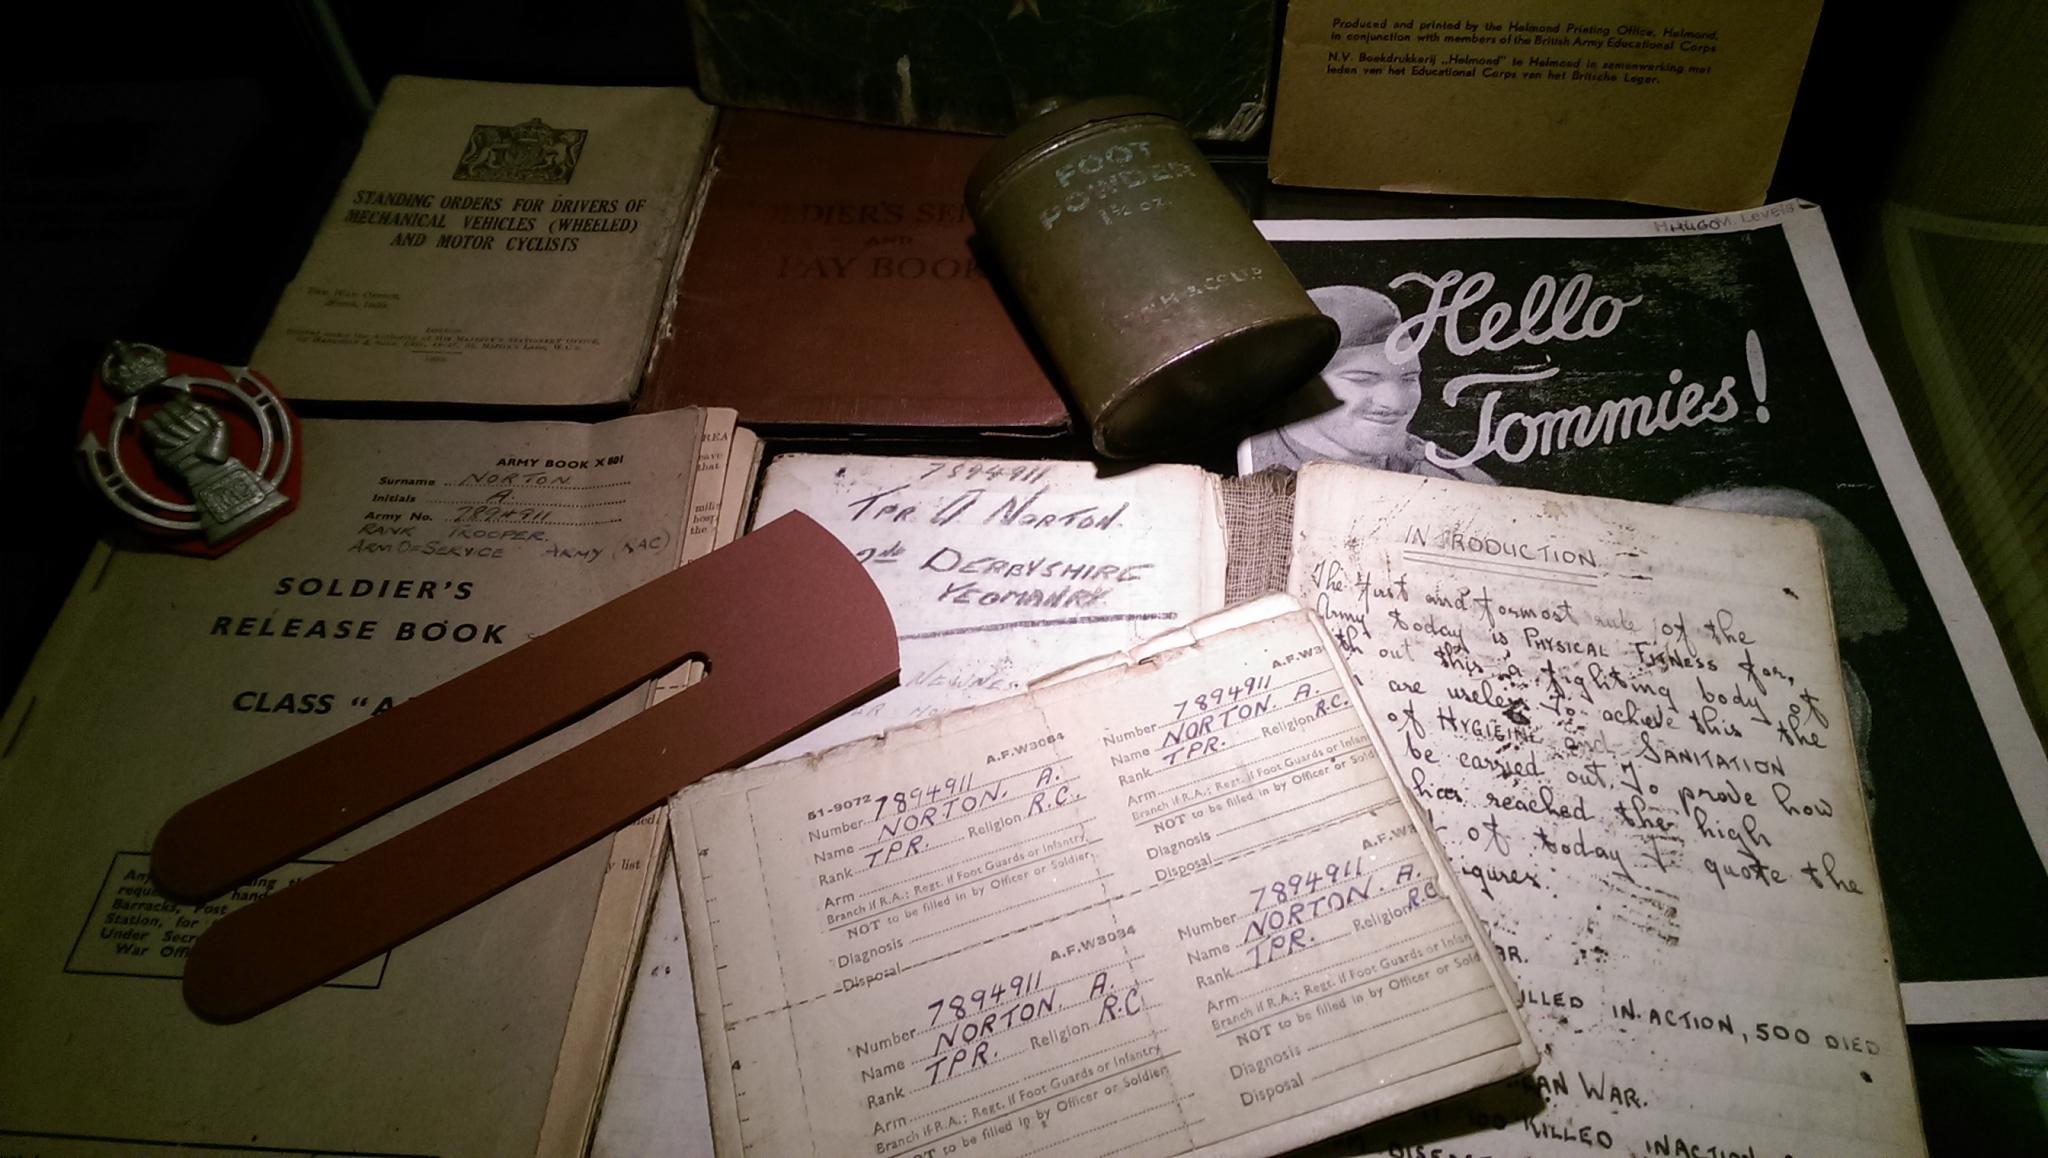 Produced and printed by the Helmond Printing Office, Helmond,
in conjunction with members of the British Army Educational Corps
N.V. Boekdrukkerij „Helmond" te Helmond in samenwerking met
leden van het Educational Corps van het Britsche Leger.
STANDING ORDERS FOR DRIVERS OF
MECHANICAL VEHICLES (WHEELED)
AND MOTOR CYCLISTS
THE WAR OFFICE,
SOLDIER'S
AND
PAY BOOK
FOOT
POWDER
1½ OZ.
Hello
Tommies!
ARMY BOOK X 801
Surname NORTON.
Initials A.
Army No. 7894911
RANK TROOPER.
ARM OF SERVICE ARMY (RAC)
SOLDIER'S
RELEASE BOOK
CLASS "A
Any
Barracks, Post
Station, for
Under Secre
War Offi
7894911
TPR A NORTON.
DERBYSHIRE
YEOMANRY
NEWNES
INTRODUCTION
The first and formost rule of the
Army today is PHYSICAL FITNESS for,
out this a fighting body of
are useless To achieve this the
of HYGIEINE and SANITATION
be carried out. To prove how
has reached the high
of today I quote the
igures.
AR.
ILLED IN ACTION, 500 DIED
AN WAR.
KILLED IN ACTION
A.F.W3084
51-9072
Number 7894911
Name NORTON. A.
Rank TPR. Religion R.C.
Arm
Branch if R.A.; Regt. if Foot Guards or Infantry
NOT to be filled in by Officer or Soldier
Diagnosis
Disposal
A.F.W3
Number 7894911
Name NORTON. A.
Rank TPR. Religion R.C.
Arm
Branch if R.A.; Regt. if Foot Guards or Infan
NOT to be filled in by Officer or Sold
Diagnosis
Disposal
A.F.W3034
Number 7894911
Name NORTON. A.
Rank TPR. Religion R.C
Arm
Branch if R.A.; Regt. if Foot Guards or Infantry
NOT to be filled in by Officer or Soldier
A.F.W3
Number 7894911
Name NORTON. A.
Rank TPR. Religion R.C
Arm
Branch if R.A.; Regt. if Foot Guards or Inf
NOT to be filled in by Officer or Sol
Diagnosis
Disposal